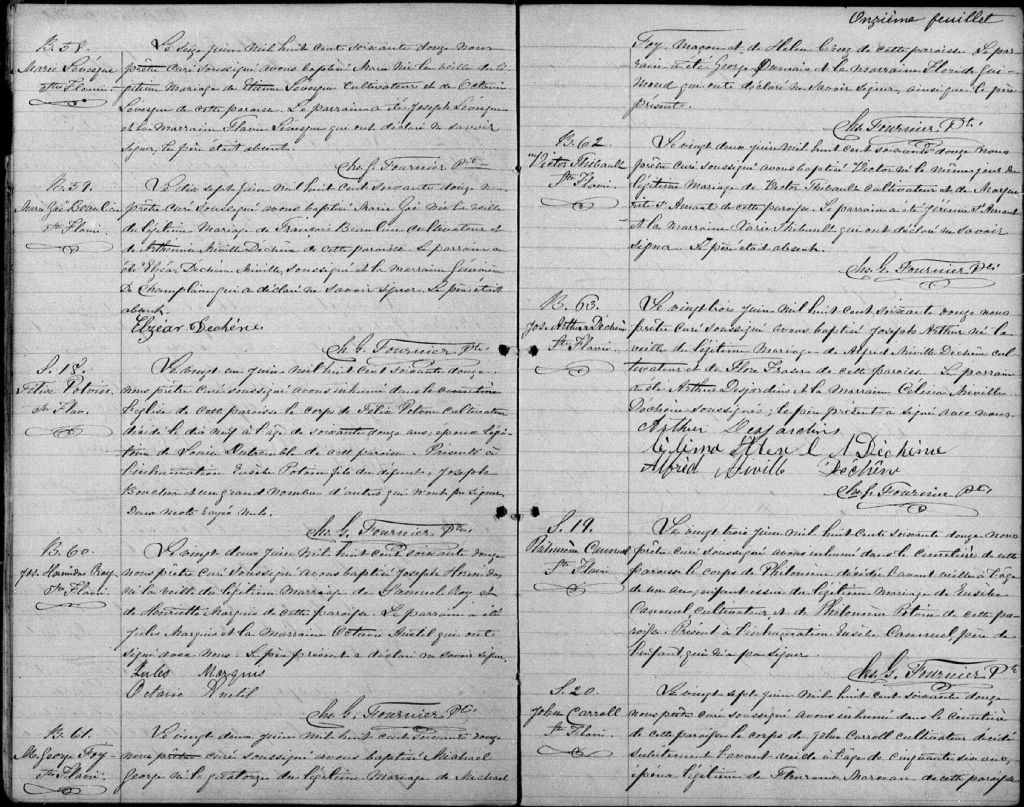 B. 58.
Marie Lévesque
Ste Flavie
Le seize juin mil huit cent soixante douze nous
prêtre curé soussigné avons baptisé Marie née la veille du lé-
gitime mariage de Etienne Levesque cultivateur et de Octavie
Lévesque de cette paroisse. Le parrain a été Joseph Levesque
et la marraine Flavie Levesque qui ont déclaré ne savoir
signer, le père était absent.
Chs. G. Fournier Ptre
B. 59.
Marie Zoé Beaulieu
Ste Flavie
Le dix sept juin mil huit cent soixante douze nous
prêtre curé soussigné avons baptisé Marie Zoé née la veille
du légitime mariage de François Beaulieu cultivateur et
de Arthemise Miville Dechêne de cette paroisse. Le parrain a
été Elzéar Dechêne Miville, soussigné et la marraine Génévieve
De Champlain qui a déclaré ne savoir signer. Le père était
absent.
Elzéar Dechêne
Ch. G. Fournier Ptre
S. 18.
Félix Potvin
Ste Flav.
Le vingt un juin mil huit cent soixante douze
nous prêtre curé soussigné avons inhumé dans le cimetière
l'église de cette paroisse le corps de Felix Potvin cultivateur
décédé le dix neuf à l'age de soixante douze ans, époux légi-
time de Louise de cette paroisse. Présents à
l'inhumation Eusèbe Potvin fils du défunt, Joseph
Boucher et un grand nombre d'autres qui n'ont pu signer.
Deux mots rayés nuls.
Chs. G. Fournier Ptre
B. 60.
Jos. Hormidas Roy
Ste Flavie
Le vingt deux juin mil huit cent soixante douze
nous prêtre curé soussigné avons baptisé Joseph Hormidas
né la veille du légitime mariage de Samuel Roy et
de Henriette Marquis de cette paroisse. Le parrain a été
Jules Marquis et la marraine Octavie qui ont
signé avec nous. Le père présent a déclaré ne savoir signer.
Jules Marquis
Octavie
Chs. G. Fournier Ptre
B. 61.
M. George Foy
Ste Flavie
Le vingt deux juin mil huit cent soixante douze
nous prêtre curé soussigné avons baptisé Michael
George né le quatorze du légitime mariage de Michael
Onzième feuillet
Foy, maçon et de Helen de cette paroisse. Le par-
rain a été George Dumais et la marraine Flore de Gui-
mond qui ont déclaré ne savoir signer, ainsi que le père
présent.
Chs. Fournier Ptre
B. 62
Victor Thibault
Ste Flavie
Le vingt deux juin mil huit cent soixante douze nous
prêtre curé soussigné avons baptisé Victor né le même jour du
légitime mariage de Victor Thibault cultivateur et de Margue-
rite St Amant de cette paroisse. Le parrain a été Jérémie St Amant
et la marraine Marie Thibault qui ont déclaré ne savoir
signer. Le père était absent.
Chs. G. Fournier Ptre
B. 63.
Jos. Arthur Dechêne
Ste Flavie
Le vingt trois juin mil huit cent soixante douze nous
prêtre curé soussigné avons baptisé Joseph Arthur né la
veille du légitime mariage de Alfred Miville Dechêne cul-
tivateur et de Flore Fraser de cette paroisse. Le parrain
a été Arthur Desjardins et la marraine Célina Miville
Dechêne soussignés; le père présent a signé avec nous.
Arthur Desjardins
Dechène
Alfred Miville Dechêne
Chs. G. Fournier Ptre
S. 19.
Philomène Canuel
Ste Flavie
Le vingt trois juin mil huit cent soixante douze nous
prêtre curé soussigné avons inhumé dans le cimetière de cette
paroisse le corps de Philomène décédée l'avant veille à l'âge
de un an, enfant issue du légitime mariage de Eusèbe
Canuel cultivateur et de Philomène Potvin de cette pa-
roisse. Présent à l'inhumation Eusèbe Canuel père de
l'enfant qui n'a pu signer.
Chs. G. Fournier Ptre
S. 20.
John Carroll
Ste Flavie
Le vingt sept juin mil huit cent soixante douze
nous prêtre curé soussigné avons inhumé dans le cimetière
de cette paroisse le corps de John Carroll cultivateur décédé
subitement l'avant veille à l'age de cinquante six ans,
époux légitime de de cette paroisse